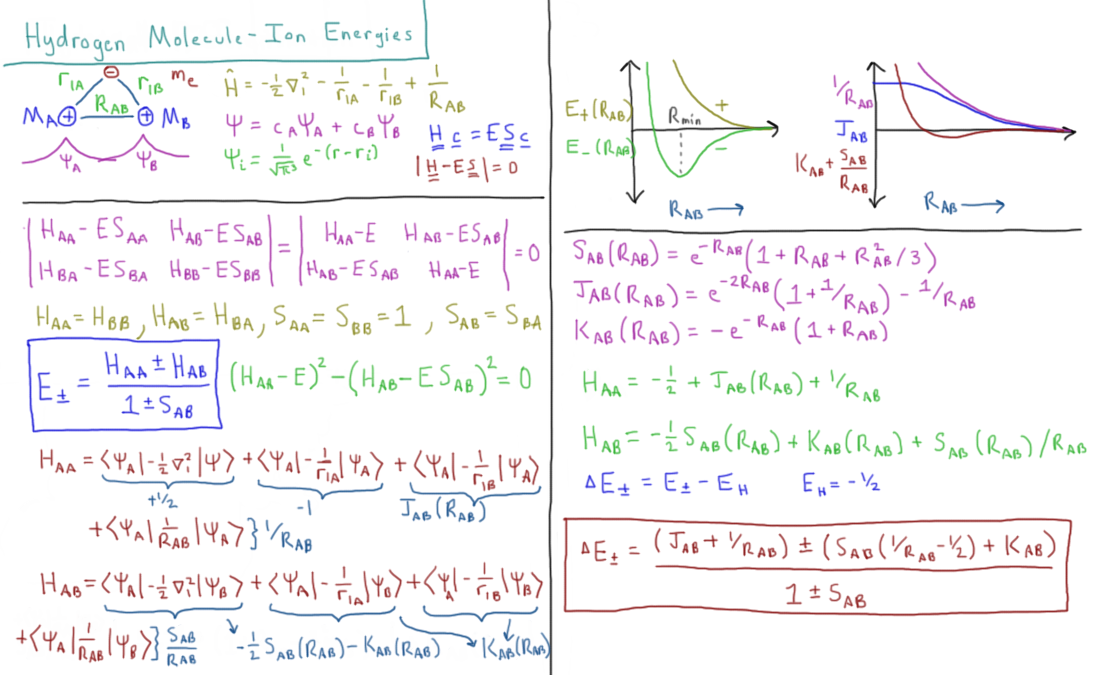 Hydrogen Molecule-Ion Energies
⊖ mₑ
r₁A r₁B
M_A ⊕ R_AB ⊕ M_B
Ψ_A Ψ_B
Ĥ = -½∇₁² - 1/r₁A - 1/r₁B + 1/R_AB
Ψ = c_AΨ_A + c_BΨ_B
H c = E S c
Ψᵢ = 1/√π³ e^-(r-rᵢ)
|H - E S| = 0
|H_AA - ES_AA H_AB - ES_AB| = |H_AA - E H_AB - ES_AB| = 0
|H_BA - ES_BA H_BB - ES_BB| |H_AB - ES_AB H_AA - E|
H_AA = H_BB, H_AB = H_BA, S_AA = S_BB = 1, S_AB = S_BA
E± = (H_AA ± H_AB)/(1 ± S_AB) (H_AA - E)² - (H_AB - ES_AB)² = 0
H_AA = ⟨Ψ_A|-½∇₁²|Ψ⟩ + ⟨Ψ_A|-1/r₁A|Ψ_A⟩ + ⟨Ψ_A|-1/r₁B|Ψ_A⟩
+½ -1 J_AB(R_AB)
+⟨Ψ_A|1/R_AB|Ψ_A⟩} 1/R_AB
H_AB = ⟨Ψ_A|-½∇₁²|Ψ_B⟩ + ⟨Ψ_A|-1/r₁A|Ψ_B⟩ + ⟨Ψ_A|-1/r₁B|Ψ_B⟩
+⟨Ψ_A|1/R_AB|Ψ_B⟩} S_AB/R_AB -½S_AB(R_AB) - K_AB(R_AB) K_AB(R_AB)
E₊(R_AB)
E₋(R_AB)
R_min
+
-
R_AB →
1/R_AB
J_AB
K_AB + S_AB/R_AB
R_AB →
S_AB(R_AB) = e^-R_AB (1 + R_AB + R²_AB/3)
J_AB(R_AB) = e^-2R_AB (1 + 1/R_AB) - 1/R_AB
K_AB(R_AB) = -e^-R_AB (1 + R_AB)
H_AA = -½ + J_AB(R_AB) + 1/R_AB
H_AB = -½S_AB(R_AB) + K_AB(R_AB) + S_AB(R_AB)/R_AB
ΔE± = E± - E_H E_H = -½
ΔE± = ((J_AB + 1/R_AB) ± (S_AB(1/R_AB - ½) + K_AB))/(1 ± S_AB)